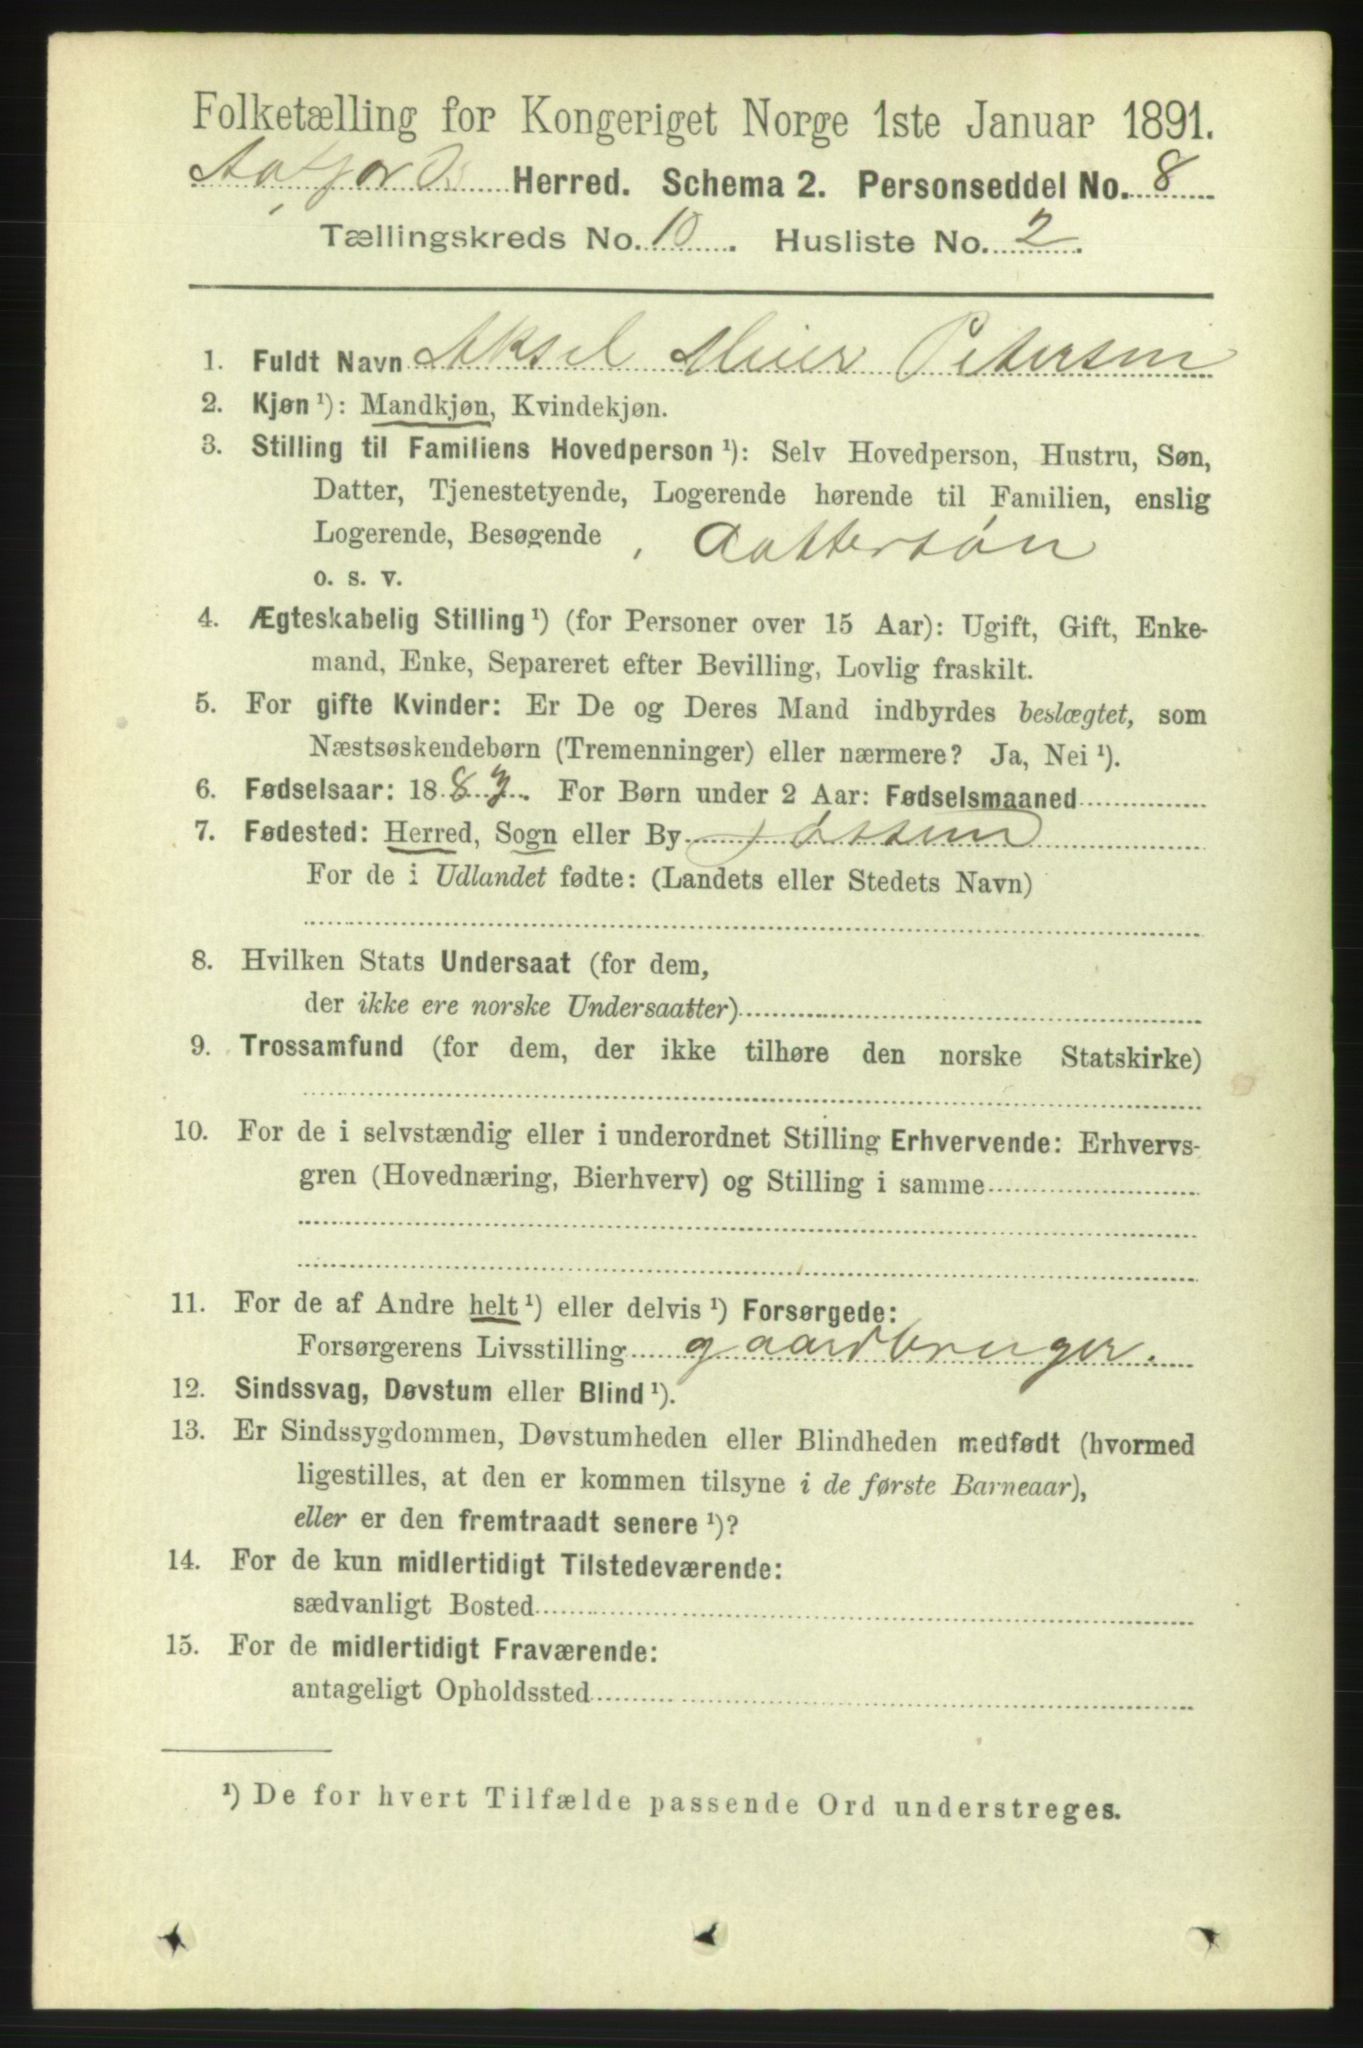 Folketælling for Kongeriget Norge 1ste Januar 1891.
Aafjord Herred. Schema 2. Personseddel No. 8
Tællingskreds No. 10. Husliste No. 2.
1. Fuldt Navn Aksel Meier Petersen
2. Kjøn ¹): Mandkjøn, Kvindekjøn.
3. Stilling til Familiens Hovedperson ¹): Selv Hovedperson, Hustru, Søn,
Datter, Tjenestetyende, Logerende hørende til Familien, enslig
Logerende, Besøgende , dattersøn
o. s. v.
4. Ægteskabelig Stilling ¹) (for Personer over 15 Aar): Ugift, Gift, Enke-
mand, Enke, Separeret efter Bevilling, Lovlig fraskilt.
5. For gifte Kvinder: Er De og Deres Mand indbyrdes beslægtet, som
Næstsøskendebørn (Tremenninger) eller nærmere? Ja, Nei ¹).
6. Fødselsaar: 188 . For Børn under 2 Aar: Fødselsmaaned
7. Fødested: Herred, Sogn eller By Jøssun
For de i Udlandet fødte: (Landets eller Stedets Navn)
8. Hvilken Stats Undersaat (for dem,
der ikke ere norske Undersaatter)
9. Trossamfund (for dem, der ikke tilhøre den norske Statskirke)
10. For de i selvstændig eller i underordnet Stilling Erhvervende: Erhvervs-
gren (Hovednæring, Bierhverv) og Stilling i samme
11. For de af Andre helt ¹) eller delvis ¹) Forsørgede:
Forsørgerens Livsstilling gaardbruger.
12. Sindssvag, Døvstum eller Blind ¹).
13. Er Sindssygdommen, Døvstumheden eller Blindheden medfødt (hvormed
ligestilles, at den er kommen tilsyne i de første Barneaar),
eller er den fremtraadt senere ¹)?
14. For de kun midlertidigt Tilstedeværende:
sædvanligt Bosted
15. For de midlertidigt Fraværende:
antageligt Opholdssted
¹) De for hvert Tilfælde passende Ord understreges.